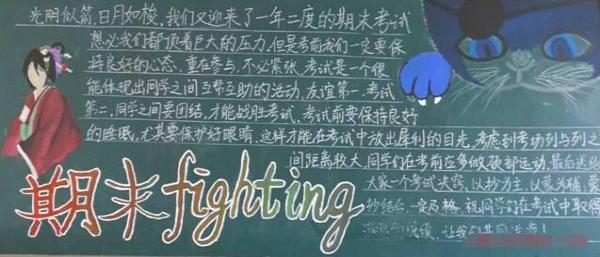 光阴似箭,日月如梭,我们又迎来了一年二度的期末考试
想必我们都顶着巨大的压力,但是考前我们一定要保
持良好的心态,重在参与,不必紧张,考试是一个很
能体现出同学之间互帮互助的活动,友谊第一,考试
第二,同学之间要团结,才能战胜考试,考试前要保持良好
的睡眠,尤其要保护好眼睛,这样才能在考试中放出犀利的目光,考虑到考场列与列之
间距离较大,同学们在考前应多做颈部运动,最后送给
大家一个考试决窍,以抄为主,以蒙为辅,蒙
抄结合,一定及格,祝同学们在考试中取得
让我们共同
期末fighting